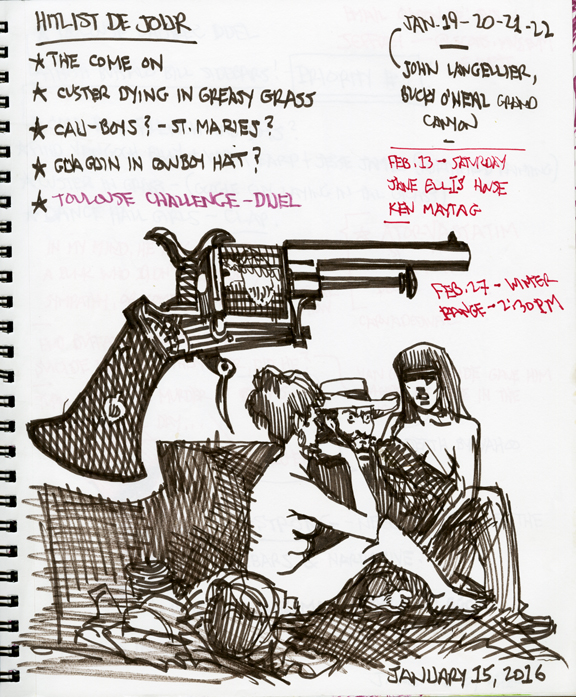 HITLIST DE JOUR
★ THE COME ON
★ CUSTER DYING IN GREASY GRASS
★ CALI-BOYS? - ST. MARIES?
★ IN COWBOY HAT?
★ TOULOUSE CHALLENGE - DUEL
JAN. 19-20-21-22
JOHN LANGELLIER,
BUCKY O'NEAL GRAND
CANYON
FEB. 13 → SATURDAY
JANE ELLIS HOUSE
KEN MAYTAG
FEB. 27 → WINTER
RANGE → 2:30 PM
JANUARY 15, 2016